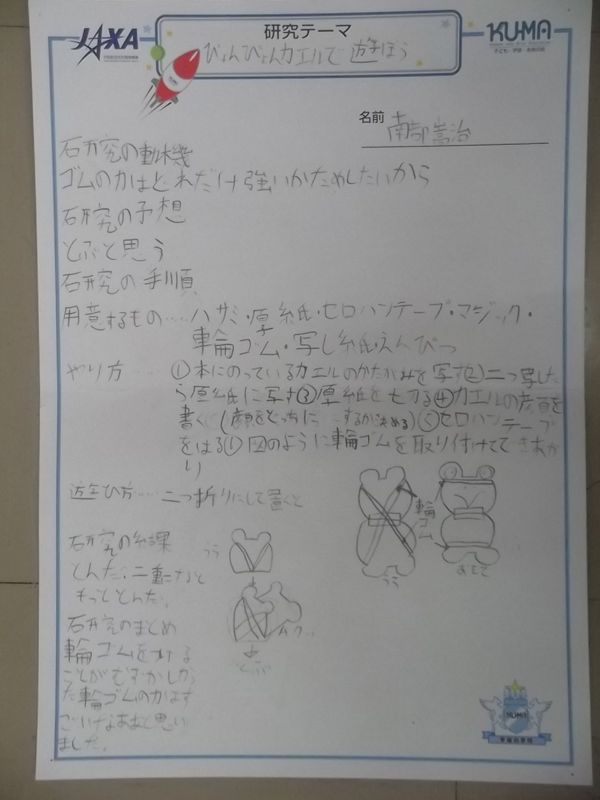 JAXA
研究テーマ
ぴょんぴょんカエルで遊ぼう
KUMA
名前 南部嵩治
研究の動機
ゴムの力はどれだけ強いかためしたいから
研究の予想
とぶと思う
研究の手順
用意するもの……ハサミ・厚紙・セロハンテープ・マジック・
輪ゴム・写し紙・えんぴつ
やり方……①本にのっているカエルのかたがみを写す②二つ写した
ら厚紙に写す③厚紙を切る④カエルの顔を
書く(顔をどっちにするか決める)⑤セロハンテープ
をはる⑥図のように輪ゴムを取り付けてできあが
り
遊び方……二つ折りにして置くと
輪ゴム
うら
おもて
研究の結課
とんだ。二重にすると
もっととんだ。
うら
研究のまとめ
輪ゴムをつける
ことがむずかしかっ
た輪ゴムの力はす
ごいなあと思い
ました。
KUMA